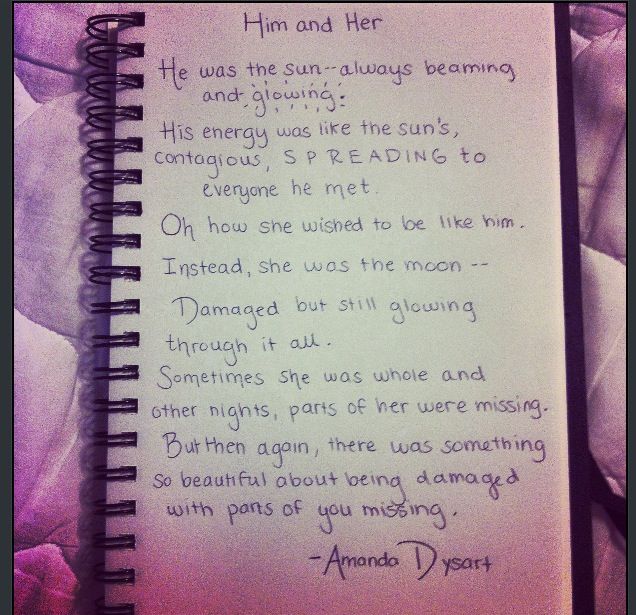 Him and Her
He was the sun--always beaming
and glowing.
His energy was like the sun's,
contagious, S P R E A D I N G to
everyone he met.
Oh how she wished to be like him.
Instead, she was the moon --
Damaged but still glowing
through it all.
Sometimes she was whole and
other nights, parts of her were missing.
But then again, there was something
so beautiful about being damaged
with parts of you missing.
-Amanda Dysart